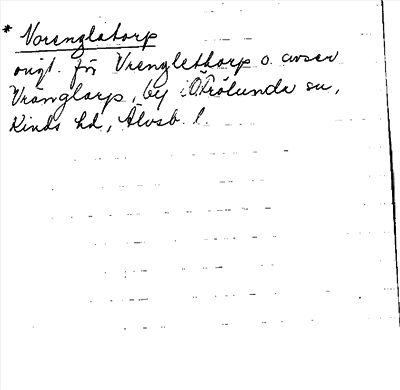 * Vorenglatorp
avigt. för Vrenglethorp o. avser
Vränglarp, by i ÖFrölunda sn,
Kinds hd, Älvsb. l.